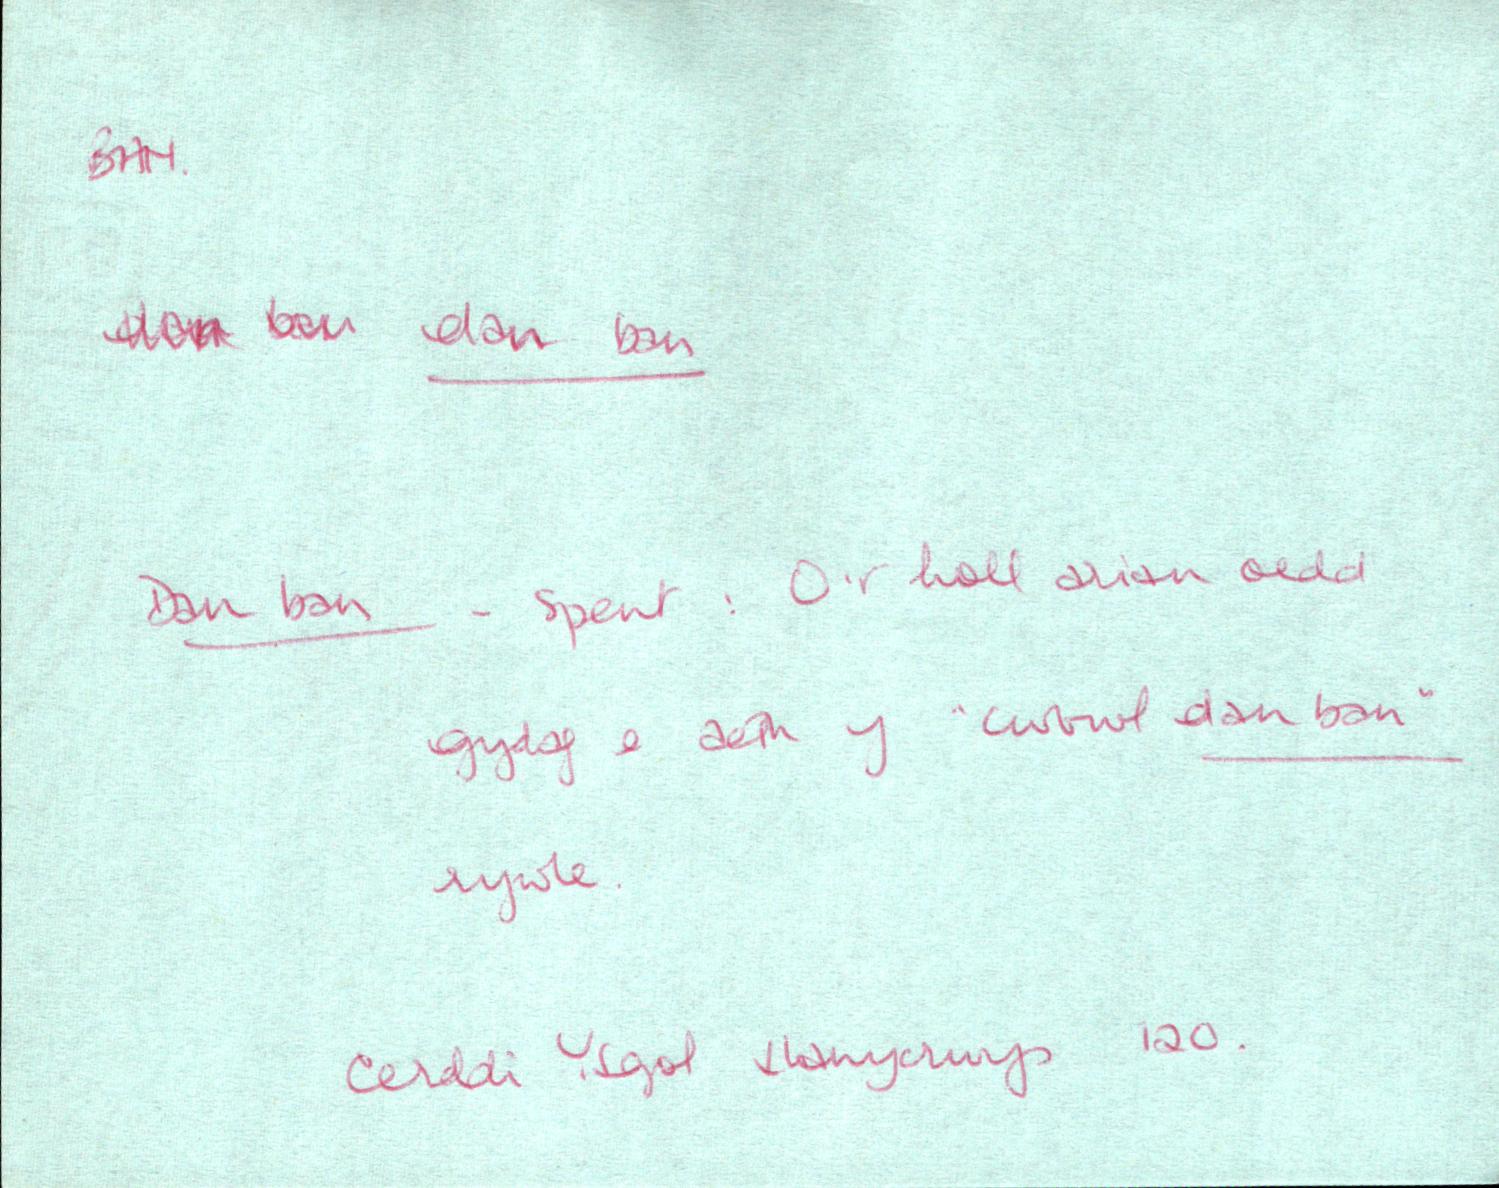 BHN.
dan ban dan ban
Dan ban - spent : O'r holl arian oedd
gydag e aeth y "cwbwl dan ban"
rywle.
Cerddi Ysgol Llanycrwys 120.